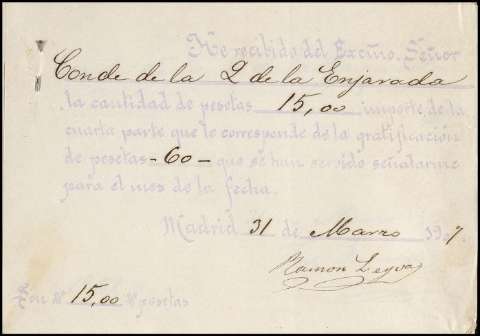 He recibido del Excmo. Señor
Conde de la Q de la Enjarada
la cantidad de pesetas 15,00 importe de la
cuarta parte que le corresponde de la gratificación
de pesetas -60- que se han servido señalarme
para el mes de la fecha.
Madrid 31 de Marzo 19 7.
Ramon Leyva
Son # 15,00 # pesetas